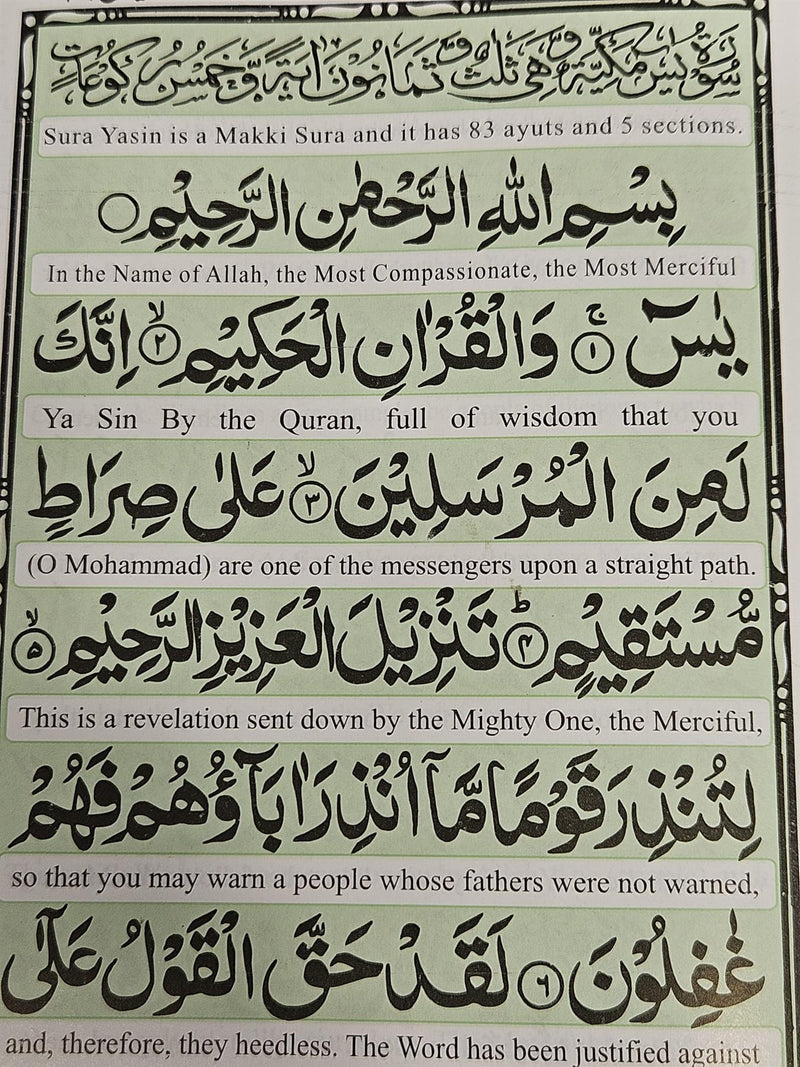 سورة يس مكية وهي ثلث وثمانون اية وخمس ركوعات
Sura Yasin is a Makki Sura and it has 83 ayuts and 5 sections.
بِسْمِ اللّٰهِ الرَّحْمٰنِ الرَّحِيْمِ ○
In the Name of Allah, the Most Compassionate, the Most Merciful
يٰسٓ ۚ ۱ وَالْقُرْاٰنِ الْحَكِيْمِ ۙ ۲ اِنَّكَ
Ya Sin By the Quran, full of wisdom that you
لَمِنَ الْمُرْسَلِيْنَ ۙ ۳ عَلٰى صِرَاطٍ
(O Mohammad) are one of the messengers upon a straight path.
مُّسْتَقِيْمٍ ؕ ۴ تَنْزِيْلَ الْعَزِيْزِ الرَّحِيْمِ ۙ ۵
This is a revelation sent down by the Mighty One, the Merciful,
لِتُنْذِرَ قَوْمًا مَّاۤ اُنْذِرَ اٰبَآؤُهُمْ فَهُمْ
so that you may warn a people whose fathers were not warned,
غٰفِلُوْنَ ۶ لَقَدْ حَقَّ الْقَوْلُ عَلٰٓى
and, therefore, they heedless. The Word has been justified against